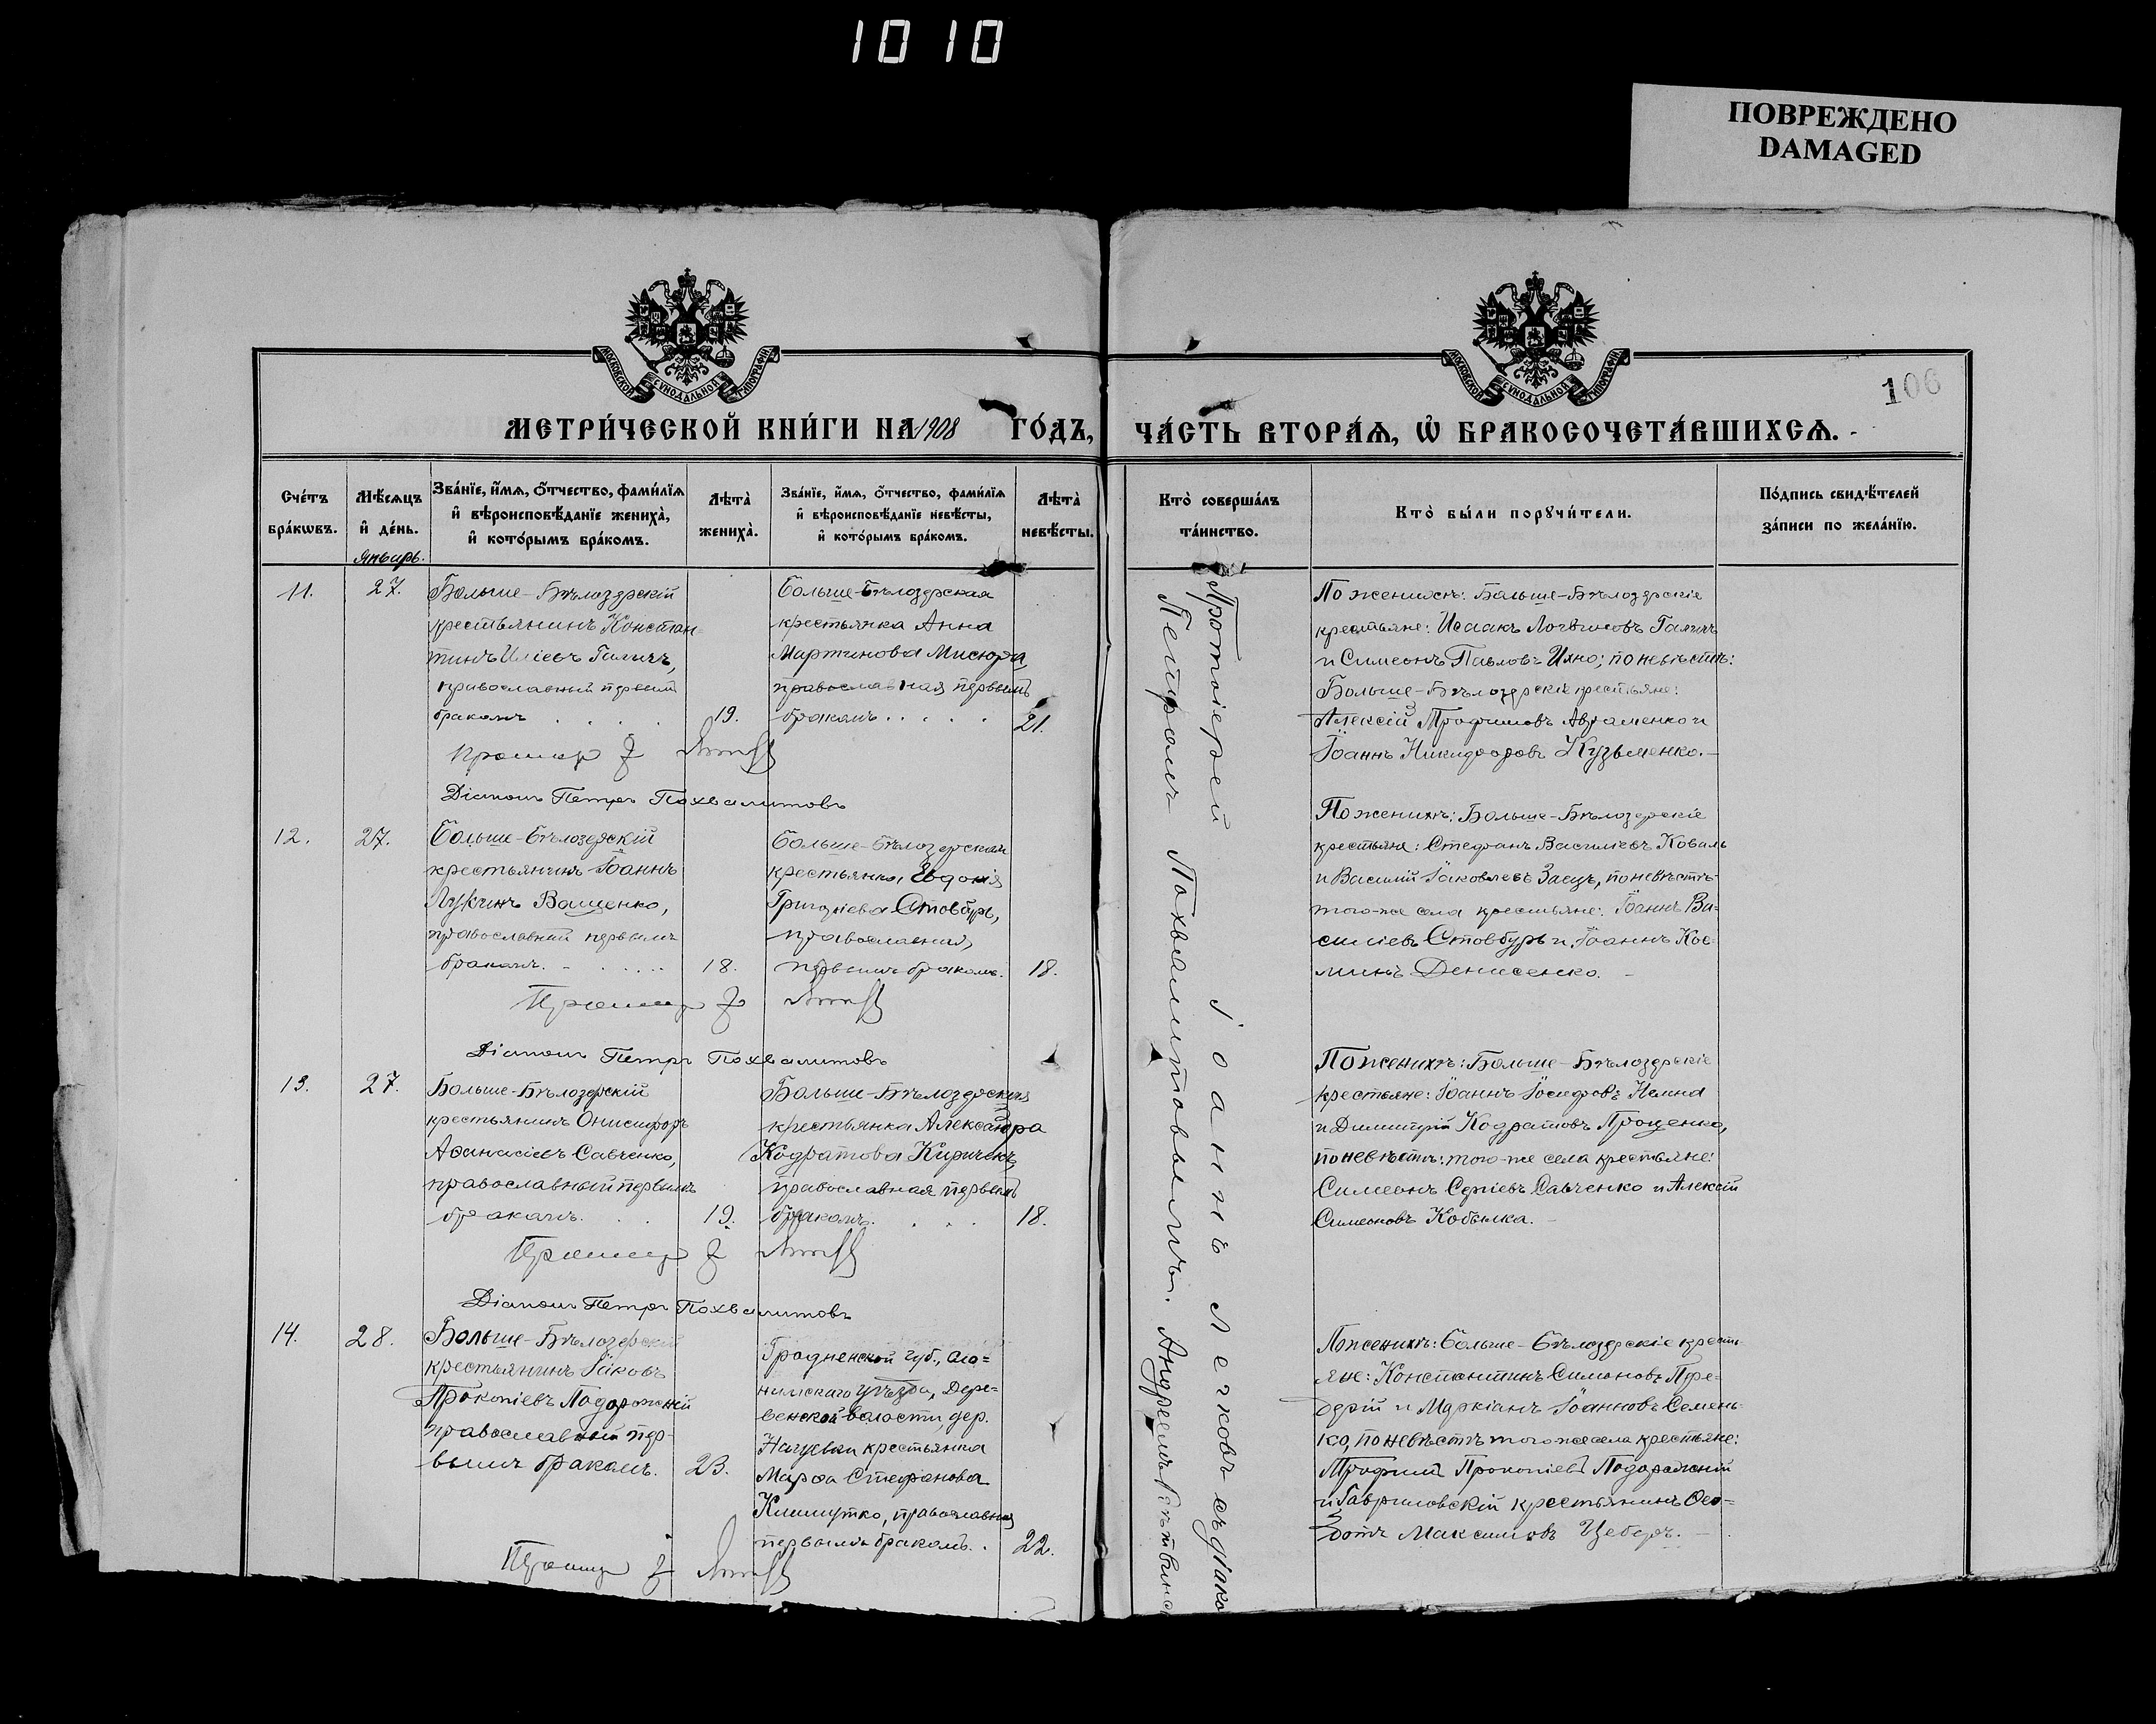 1010
ПОВРЕЖДЕНО
DAMAGED
МОСКОВСКОЙ СѴНОДАЛЬНОЙ ТИПОГРАФІИ
МОСКОВСКОЙ СѴНОДАЛЬНОЙ ТИПОГРАФІИ
106
МЕТРИ́ЧЕСКОЙ КНИ́ГИ НА 1908 ГО́ДЪ,
ЧА́СТЬ ВТОРА́Ѧ, Ѡ БРАКОСОЧЕТА́ВШИХСѦ.
Сче́тъ бра́кѡвъ.
Мѣ́сяцъ и де́нь.
Зва́нїе, и́мѧ, о́тчество, фами́лїѧ
и вѣроисповѣ́данїе жениха̀,
и кото́рымъ бра́комъ.
Лѣта̀ жениха̀.
Зва́нїе, и́мѧ, о́тчество, фами́лїѧ
и вѣроисповѣ́данїе невѣ́сты,
и кото́рымъ бра́комъ.
Лѣта̀ невѣ́сты.
Кто̀ соверша́лъ
та́инство.
Кто̀ бы́ли порꙋчи́тели.
По́дпись свидѣ́телей
за́писи по жела́нїю.
Январь.
11.
27.
Больше-Бѣлозерскій
крестьянинъ Констан=
тинъ Иліевъ Галичъ,
православный первымъ
бракомъ . . . .
19.
Больше-Бѣлозерская
крестьянка Анна
Мартинова Мисюра,
православная первымъ
бракомъ . . . . .
21.
Діаконъ Петръ Похвалитовъ
По женихѣ: Больше-Бѣлозерскіе
крестьяне: Исаакъ Логвиновъ Галичъ
и Симеонъ Павловъ Ияно; по невѣстѣ:
Больше-Бѣлозерскіе крестьяне:
Алексій Трофимовъ Авраменко и
Іоаннъ Никифоровъ Кузьменко.—
12.
27.
Больше-Бѣлозерскій
крестьянинъ Іоаннъ
Лукинъ Ващенко,
православный первымъ
бракомъ. - . . . . .
18.
Больше-Бѣлозерская
крестьянка, Евдокія
Григоріева Стовбуръ,
православная,
первымъ бракомъ.
18.
Діаконъ Петръ Похвалитовъ
По женихѣ: Больше-Бѣлозерскіе
крестьяне: Стефанъ Василіевъ Коваль
и Василій Іаковлевъ Заецъ, по невѣстѣ
того-же села крестьяне: Іоаннъ Ва=
силіевъ Стовбуръ и Іоаннъ Кос-
минъ Денисенко. —
13.
27.
Больше-Бѣлозерскій
крестьянинъ Онисифоръ
Аѳанасіевъ Савченко,
православный первымъ
бракомъ. . .
19.
Больше-Бѣлозерская
крестьянка Александра
Кодратова Кириченко,
православная первымъ
бракомъ. . . .
18.
Діаконъ Петръ Похвалитовъ
По женихѣ: Больше-Бѣлозерскіе
крестьяне: Іоаннъ Іосифовъ
и Димитрій Кодратовъ Проценко,
по невѣстѣ: того-же села крестьяне:
Симеонъ Сергіевъ Савченко и Алексій
Симеоновъ Кобылка. —
14.
28.
Больше-Бѣлозерскій
крестьянинъ Іаковъ
Прокопіевъ Подорожній
православный пер-
вымъ бракомъ.
23.
Гродненской губ., Сло=
нимскаго уѣзда, Дере-
венской волости, дер.
крестьянка
Марѳа Стефанова
Климутко, православная
первымъ бракомъ. .
22.
По женихѣ: Больше-Бѣлозерскіе кресть-
яне: Константинъ Симоновъ Пре-
дерій и Маркіанъ Іоанновъ Семень-
ко, по невѣстѣ того же села крестьяне:
Трофимъ Прокопіевъ Подорожній
и Гавриловскій крестьянинъ Ѳео=
дотъ Максимовъ Цебаръ. —
Протоіерей Іоаннъ Лечковъ съ діако
Петромъ Похвалитовымъ. Андреемъ